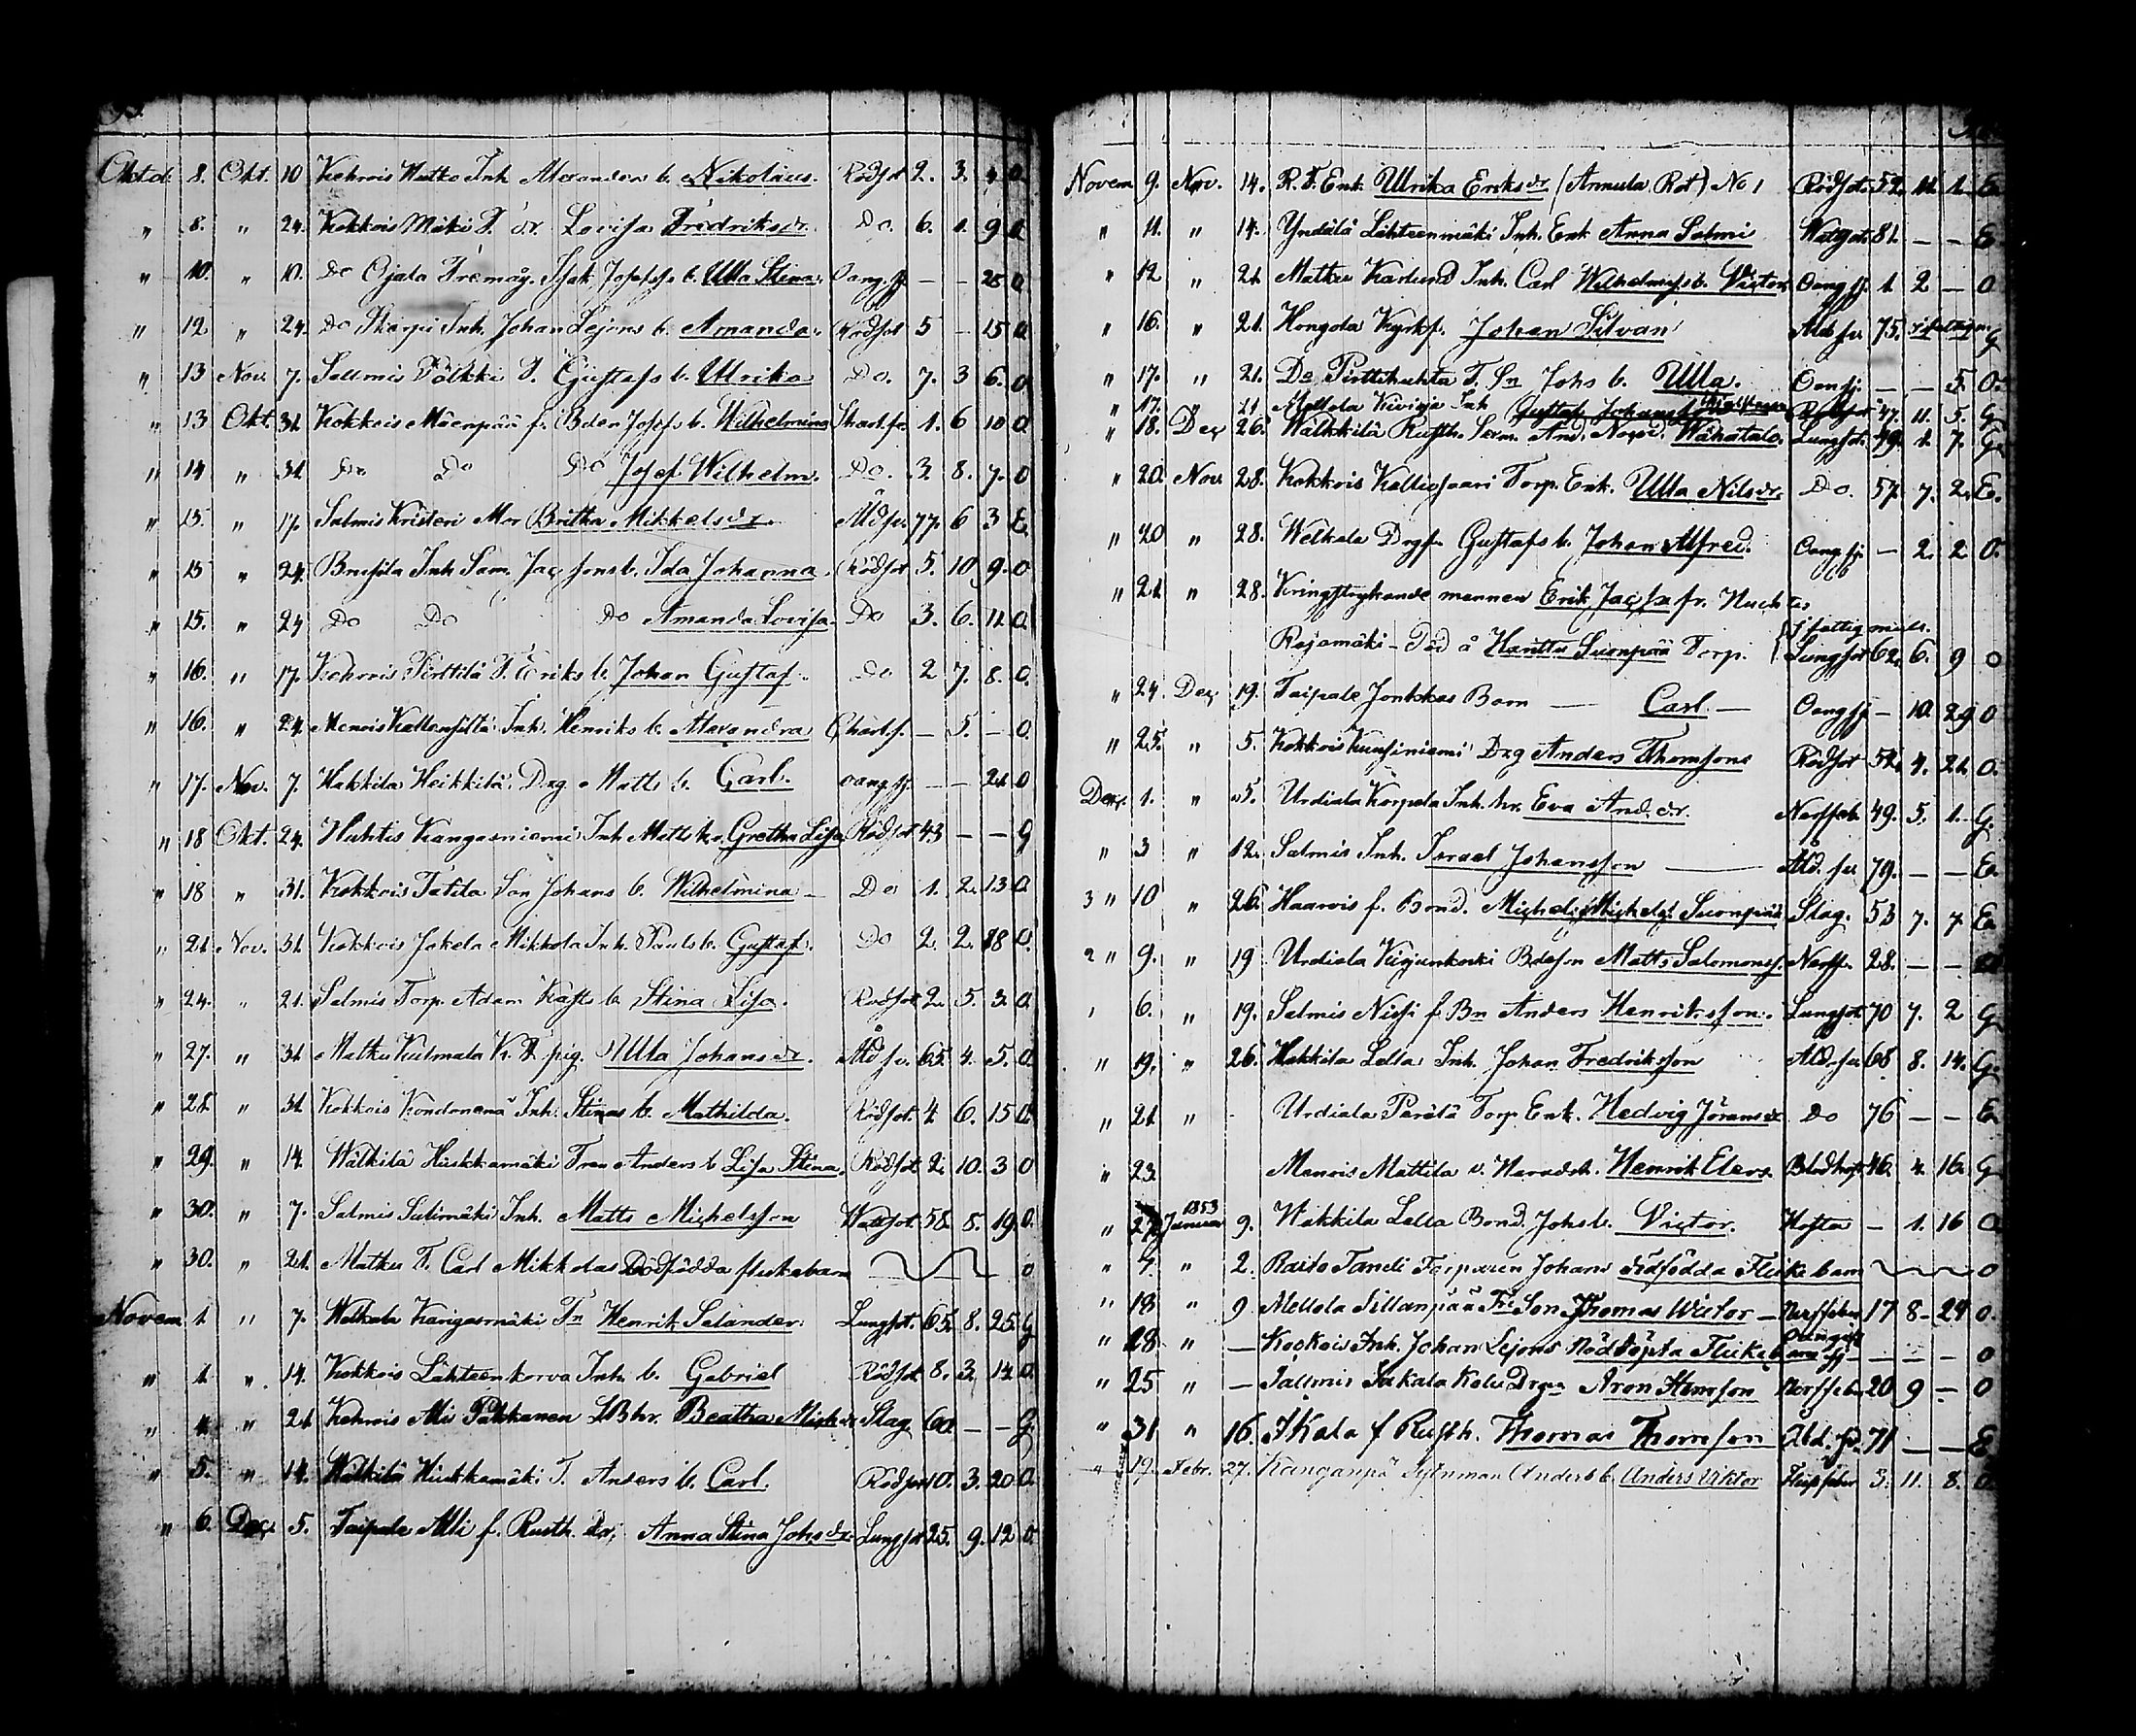 Oktob. 8. Okt. 10 Kehrois Matto Inh. Alexanders b. Nikolaus. Rödsot 2. 3. 4 O.
" 8. " 24. Kokkois Mäki T. dr. Lovisa Fredriksdr. Do. 6. 1. 9 O
" 10. " 10. Do Ojala Isak Josefss b. Ulla Stina. Oang.sj. — — 28 O
" 12 " 24. Do Skarpi Inh. Johan Lejons b. Amanda. Rödsot 5 — 15 O
" 13 Nov. 7. Salmis Pölkki T. Gustafs b. Ulrika Do. 7. 3 6. O
" 13 Okt. 31. Kokkois Mäenpää f. Bden Josefs b. Wilhelmina Skarl.fr. 1. 6 10 O
" 14 " 31. Do Do Do Josef Wilhelm. Do. 3. 8. 7. O
" 15. " 17. Salmis Kristeri Mor Britha Mikkelsdr. Åld.sv. 77. 6 3 E.
" 15 " 24. Inh. Sam. Jac.sons b. Ida Johanna. Rödsot 5. 10 9. O
" 15. " 24 Do Do Do Amanda Lovisa. Do 3. 6. 11. O.
" 16. " 17. Kehrois Pirttilä T. Eriks b. Johan Gustaf. Do 2 7. 8. O.
" 16. " 24. Menois Inh. Henriks b. Alexandra Skarl.f. — 5. — O.
" 17. Nov. 7. Hakkila Heikkilä Drg Matts b. Carl. oang.sj. — — 21 O
" 18 Okt. 24. Huhtis Kangasniemi Inh. Matts h. Gretha Lisa Rödsot 43 — — G
" 18 " 31. Kokkois Tatila Son Johans b. Wilhelmina — Do 1. 2. 13 O.
" 21 Nov. 31. Kokkois Jakela Mikkola Inh. Pauls b. Gustaf. Do 2. 2. 18 O.
" 24. " 21. Salmis Torp. Adam b. Stina Lisa. Rödsot 2. 5. 3. O.
" 27. " 31 Matku Kulmala pig. Ulla Johansdr. Åld.sv. 65. 4. 5. O.
" 28. " 31 Kokkois Inh. Stinas b. Mathilda. Rödsot. 4 6. 15 O.
" 29. " 14. Wälkilä Hiukkamäki Anders b. Lisa Stina. Rödsot 2. 10. 3 O
" 30. " 7. Salmis Sulimäki Inh. Matts Michelsson Wattsot. 58. 8. 19. O.
" 30. " 21. Matku T. Carl Mikkolas Dödfödda flickebarn — O
Novem 1. " 7. Welkala Kangasmäki Tn Henrik Selander. Lungsot. 65. 8. 25. G
" 1. " 14. Kokkois Lähteenkorva Inh. b. Gabriel Rödsot 8. 3. 14. O.
" 4. " 21 Kehrois Alli Pakkanen hr. Beatha Mich.dr Slag 60. — — G
" 5. " 14. Wälkilä Hiukkamäki T. Anders b. Carl. Rödsot 10. 3. 20 O.
" 6. Dec. 5. Taipale Alli f. Rusth. dr. Anna Stina Johsdr. Lungsot 25. 9. 12 O
Novem 9. Nov. 14. R. T. Enk. Ulrika Eriksdr (Annula Rot) No 1 Rödsot. 52. 11. 1. E.
" 11. " 14. Lähteenmäki Inh. Enk Anna Salmi Wattsot. 81. — — E
" 12 " 21. Matku Karlund Inh. Carl Wilhelmss b. Victor Oang.sj. 1. 2 — O
" 16. " 21. Hongola Kyrkf. Johan Silvan Åld.sv. 75. G
" 17. " 21. Do Pirttihuhta T. Sn Johs b. Ulla. Oan.sj. — — 5. O.
" 17. " 21 Mellola Kivioja Inh. Gustaf Johansson Rödsot 47. 11. 5. G
" 18. Dec 26. Wälkkilä Rusth. And. Wähätalo. Lungsot. 49. 1. 7. G.
" 20. Nov. 28. Kokkois Kalliosaari Torp. Enk. Ulla Nilsdr. Do. 57. 7. 2. E.
" 20 " 28. Welkala Drgf. Gustafs b. Johan Alfred. Oang.sj. — 2. 2 O.
" 21 " 28. Kringstrykande mannen Erik Jacss fr. Huchtis
Rajamäki — Död å Hanttu Suonpää Torp. Lungsot 62. 6. 9 O
" 24. Dec. 19. Taipale Jontkkas Barn — Carl. — Oang.sj. — 10. 29 O
" 25. " 5. Kokkois Kuusiniemi Drg Anders Thomsons Rödsot 52. 4. 21. O.
Decr. 1. " 5. Urdiala Korpela Inh. hr. Eva And.dr. Nerffeb. 49. 5. 1. G.
" 3 " 12. Salmis Inh. Israel Johansson — Åld.sv. 79. — — E.
3 " 10 " 26. Haarois f. Bond. Michel Michels. Suonpää Slag. 53 7. 7. E.
2 " 9. " 19 Urdiala Kirjunkoski Bdeson Matts Salomonss. Nerff. 28. — —
6. " 19. Salmis Nissi f. Bn Anders Henriksson. Lungsot 70 7. 2 G.
" 19. " 26. Hakkila Lella Inh. Johan Fredriksson Åld.sv. 68 8. 14. G.
" 21 " - Urdiala Perälä Torp. Enk. Hedvig Jöransdr Do 76 — — E.
" 23. Menois Mattila Henrik Elers. 46. 4. 16. G
" 27. 1853 Januar 9. Hakkila Lella Bond. Johs b. Victor. Hosta — 1. 16 O
" 7. " 2. Raito Tandi Torparen Johans dödfödda Flickebarn — O
" 18 " 9 Mellola Sillanpää Son Thomas Wictor — Nerffeber 17 8 - 24 O.
" 28 " — Kockois Inh. Johan Lejons Nöddöpta Flickebarn — — — O
" 25 " — Salmis Sakala Drgn Aron Nerffeber 20 9 — O
" 31 " 16. f Rusth. Thomas Thomsson Åld.sv. 71 — — E
" 19. Febr. 27. Kanganpä Anders b. Anders Viktor 3. 11. 8. O.